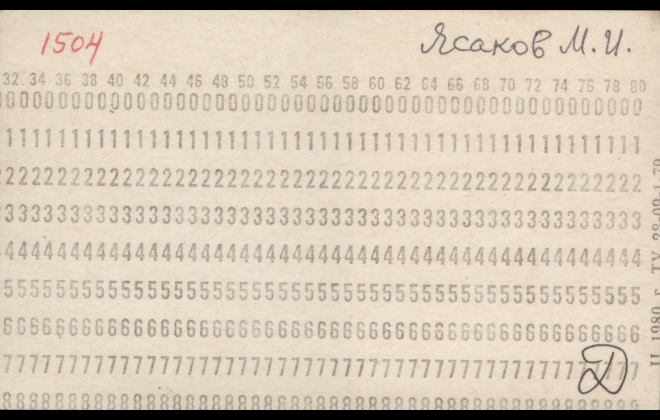 1504
Ясаков М. И.
32 34 36 38 40 42 44 46 48 50 52 54 56 58 60 62 64 66 68 70 72 74 76 78 80
0000000000000000000000000000000000000000000000000
1111111111111111111111111111111111111111111111111
2222222222222222222222222222222222222222222222222
3333333333333333333333333333333333333333333333333
4444444444444444444444444444444444444444444444444
5555555555555555555555555555555555555555555555555
6666666666666666666666666666666666666666666666666
7777777777777777777777777777777777777777777777777
8888888888888888888888888888888888888888888888888
1980 г. ТУ 28-09-1-79